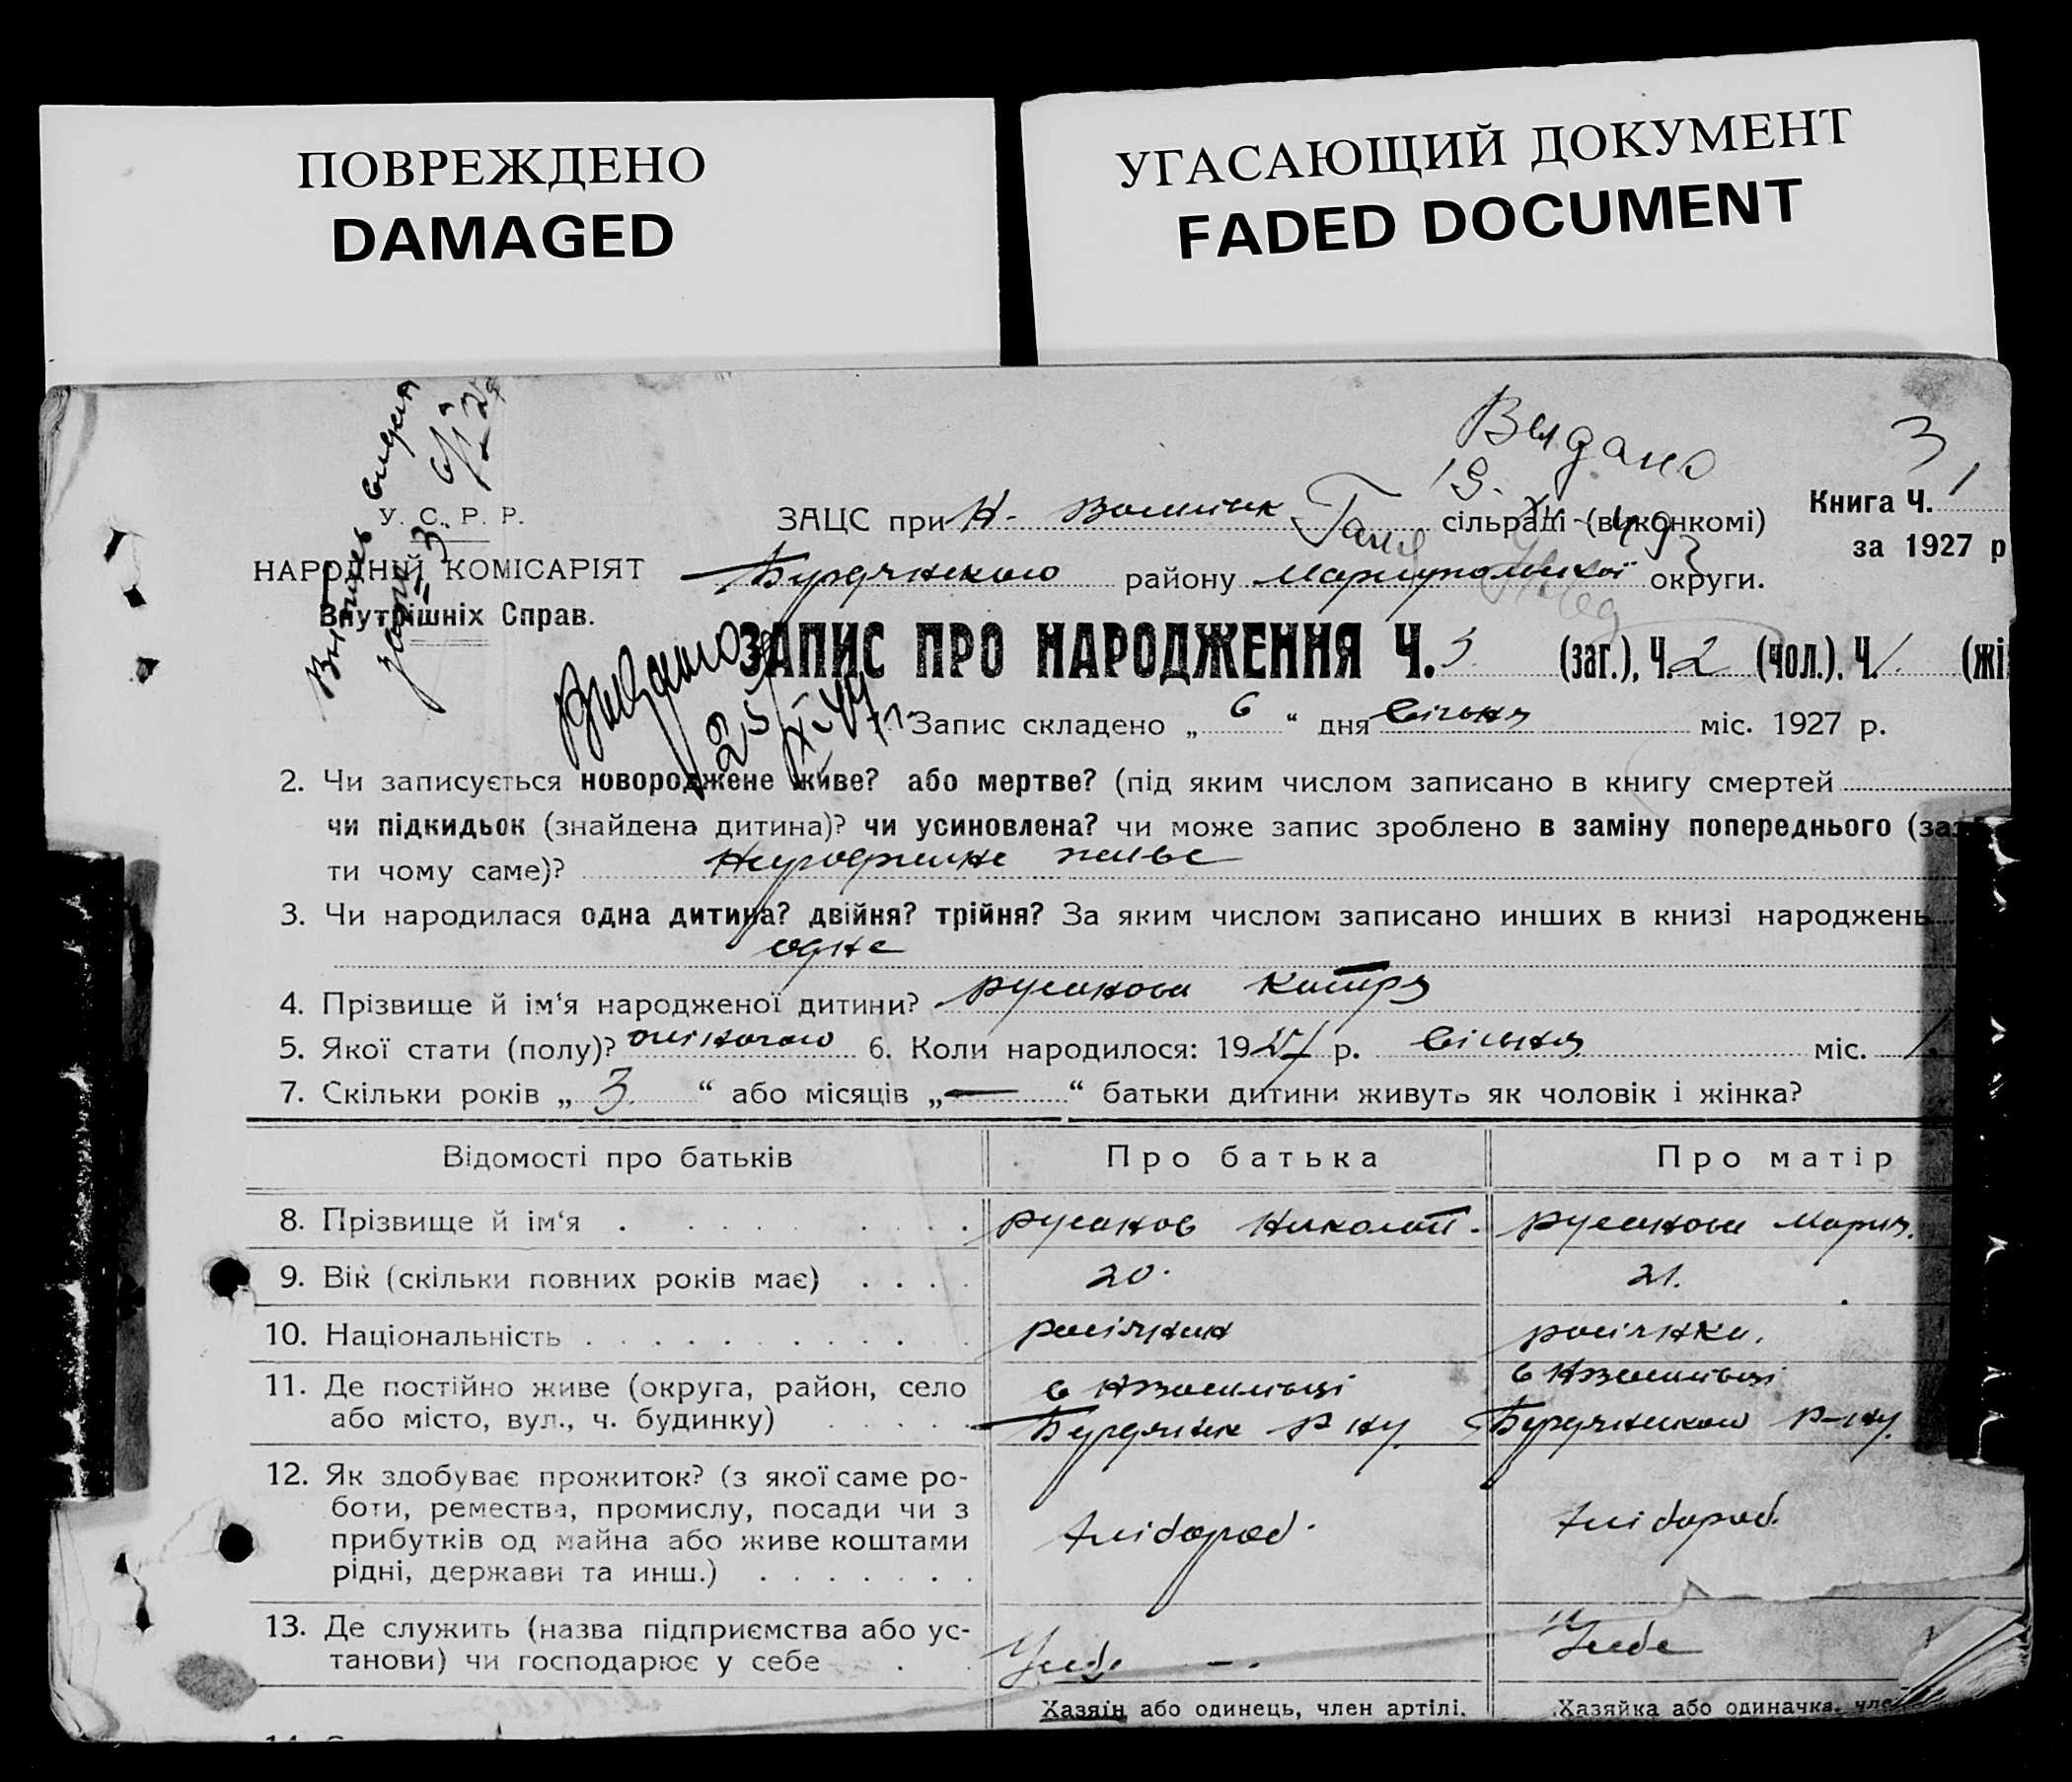 ПОВРЕЖДЕНО
DAMAGED
УГАСАЮЩИЙ ДОКУМЕНТ
FADED DOCUMENT
Выдано
3
19.
У. С. Р. Р.
НАРОДНІЙ КОМІСАРІЯТ
Внутрішніх Справ.
ЗАЦС при Н. сільраді (виконкомі)
Книга Ч. 1
за 1927 р
району Маріупольської округи.
ЗАПИС ПРО НАРОДЖЕННЯ Ч. 3 (заг.), Ч. 2 (чол.), Ч. 1. (жі
Видано
25
1. Запис складено „ 6 “ дня січня міс. 1927 р.
2. Чи записується новороджене живе? або мертве? (під яким числом записано в книгу смертей
чи підкидьок (знайдена дитина)? чи усиновлена? чи може запис зроблено в заміну попереднього (заз
ти чому саме)? живе
3. Чи народилася одна дитина? двійня? трійня? За яким числом записано инших в книзі народжень
одне
4. Прізвище й ім‘я народженої дитини? Русакова Катря
5. Якої стати (полу)? жіночою 6. Коли народилося: 1927 р. січня міс. 1.
7. Скільки років „ 3. “ або місяців „ — “ батьки дитини живуть як чоловік і жінка?
Відомості про батьків Про батька Про матір
8. Прізвище й ім‘я Русаков Николай. Русакова Мария.
9. Вік (скільки повних років має) 20. 21.
10. Національність росіянин росіянка.
11. Де постійно живе (округа, район, село
або місто, вул., ч. будинку) р-ну. р-ну.
12. Як здобуває прожиток? (з якої саме ро-
боти, ремества, промислу, посади чи з
прибутків од майна або живе коштами
рідні, держави та инш.) хлібороб. хлібороб.
13. Де служить (назва підприємства або ус-
танови) чи господарює у себе У себе У себе
Хазяїн або одинець, член артілі. Хазяйка або одиначка, чле